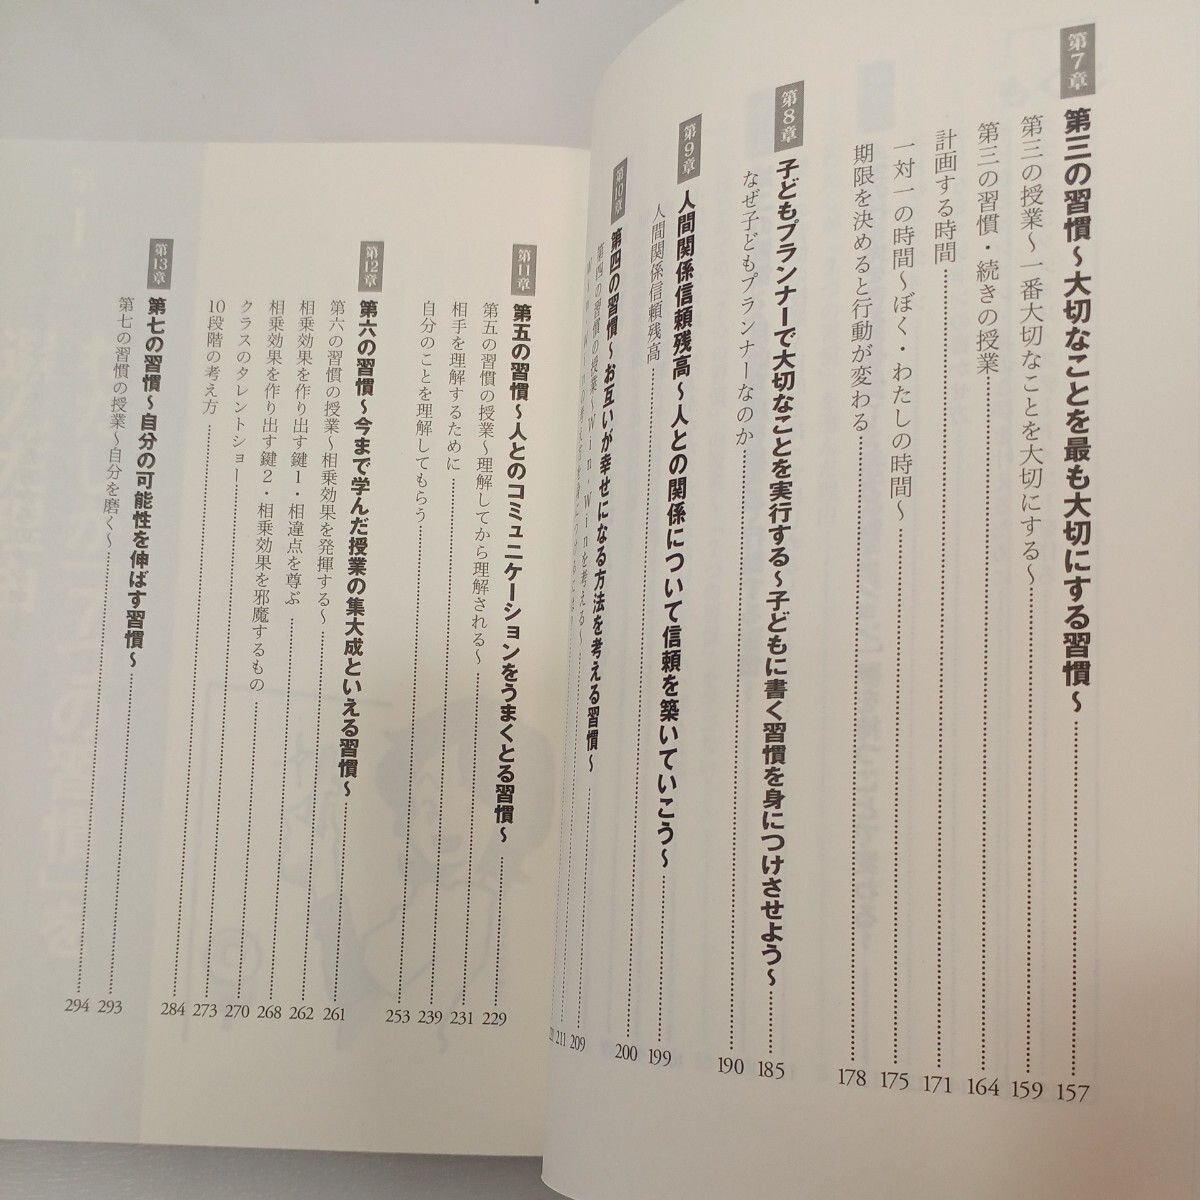 第7章
第三の習慣～大切なことを最も大切にする習慣～ 157
第三の授業～一番大切なことを大切にする～ 159
第三の習慣・続きの授業 164
計画する時間 171
一対一の時間～ぼく・わたしの時間～ 175
期限を決めると行動が変わる 178
第8章
子どもプランナーで大切なことを実行する～子どもに書く習慣を身につけさせよう～ 185
なぜ子どもプランナーなのか 190
第9章
人間関係信頼残高～人との関係について信頼を築いていこう～ 199
人間関係信頼残高 200
第10章
第四の習慣～お互いが幸せになる方法を考える習慣～ 209
第四の習慣の授業～Win-Winを考える～ 211
第11章
第五の習慣～人とのコミュニケーションをうまくとる習慣～ 229
第五の習慣の授業～理解してから理解される～ 231
相手を理解するために 239
自分のことを理解してもらう 253
第12章
第六の習慣～今まで学んだ授業の集大成といえる習慣～ 261
第六の習慣の授業～相乗効果を発揮する～ 262
相乗効果を作り出す鍵1・相違点を尊ぶ 268
相乗効果を作り出す鍵2・相乗効果を邪魔するもの 270
クラスのタレントショー 273
10段階の考え方 284
第13章
第七の習慣～自分の可能性を伸ばす習慣～ 293
第七の習慣の授業～自分を磨く～ 294